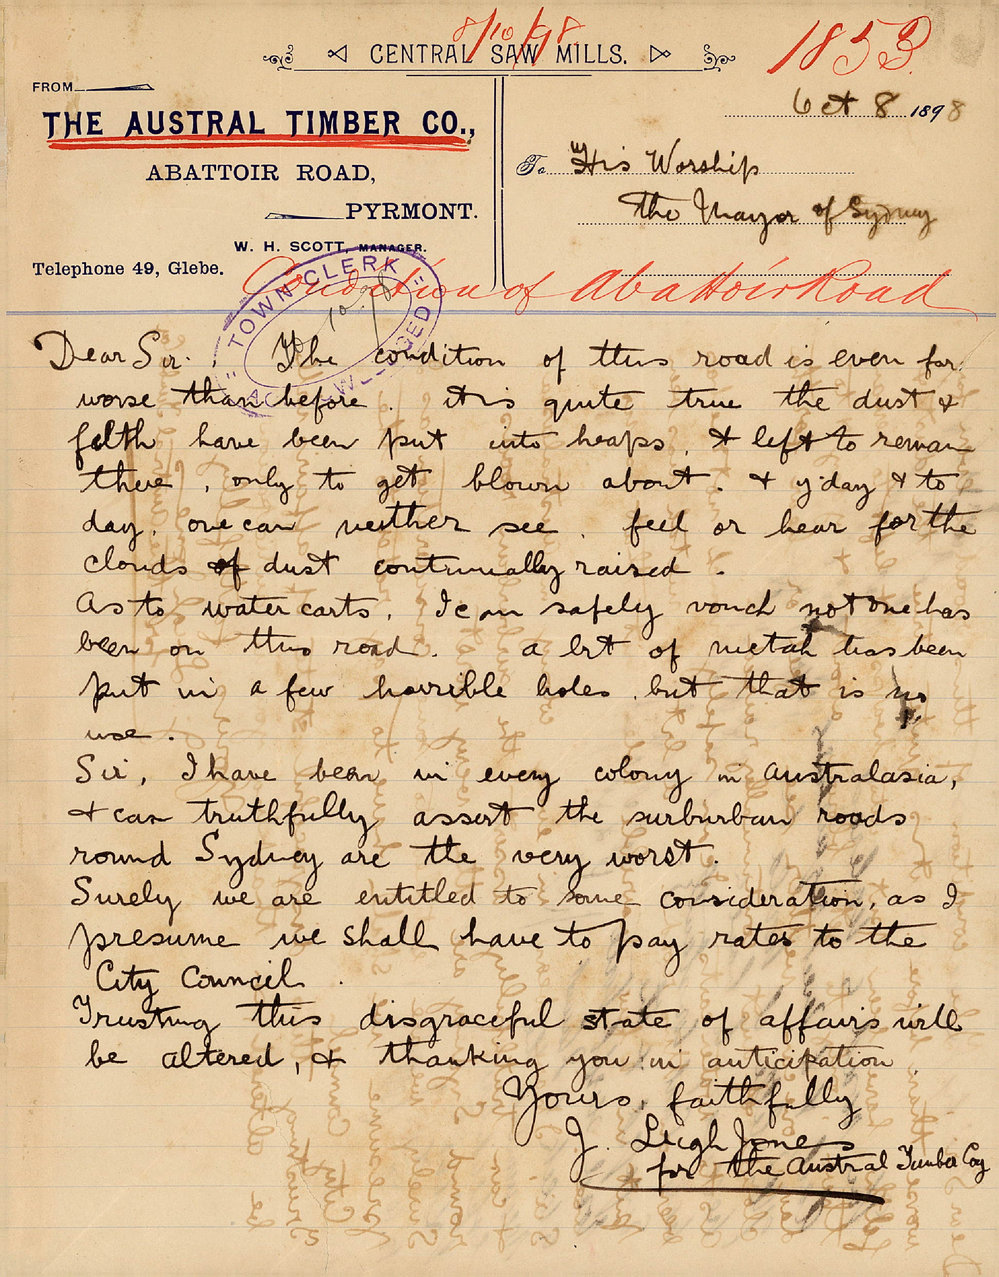 8/10/98
1853
CENTRAL SAW MILLS.
FROM
THE AUSTRAL TIMBER CO.,
ABATTOIR ROAD,
PYRMONT.
W. H. SCOTT, MANAGER.
Telephone 49, Glebe.
Oct 8 1898
To His Worship
The Mayor of Sydney
Condition of Abattoir Road
TOWN CLERK
10 98
Dear Sir. The condition of this road is even far
worse than before. it is quite true the dust &
filth have been put into heaps, & left to remain
there, only to get blown about. & y'day & to
day, one can neither see, feel or hear for the
clouds of dust continually raised.
As to water carts, I can safely vouch not one has
been on this road. a bit of metal has been
put in a few horrible holes. but that is no
use.
Sir, I have been in every colony in Australasia,
& can truthfully assert the surburban roads
round Sydney are the very worst.
Surely we are entitled to some consideration, as I
presume we shall have to pay rates to the
City Council.
Trusting this disgraceful state of affairs will
be altered, & thanking you in anticipation
Yours, faithfully
J. Leigh Jones
for The Austral Timber Coy